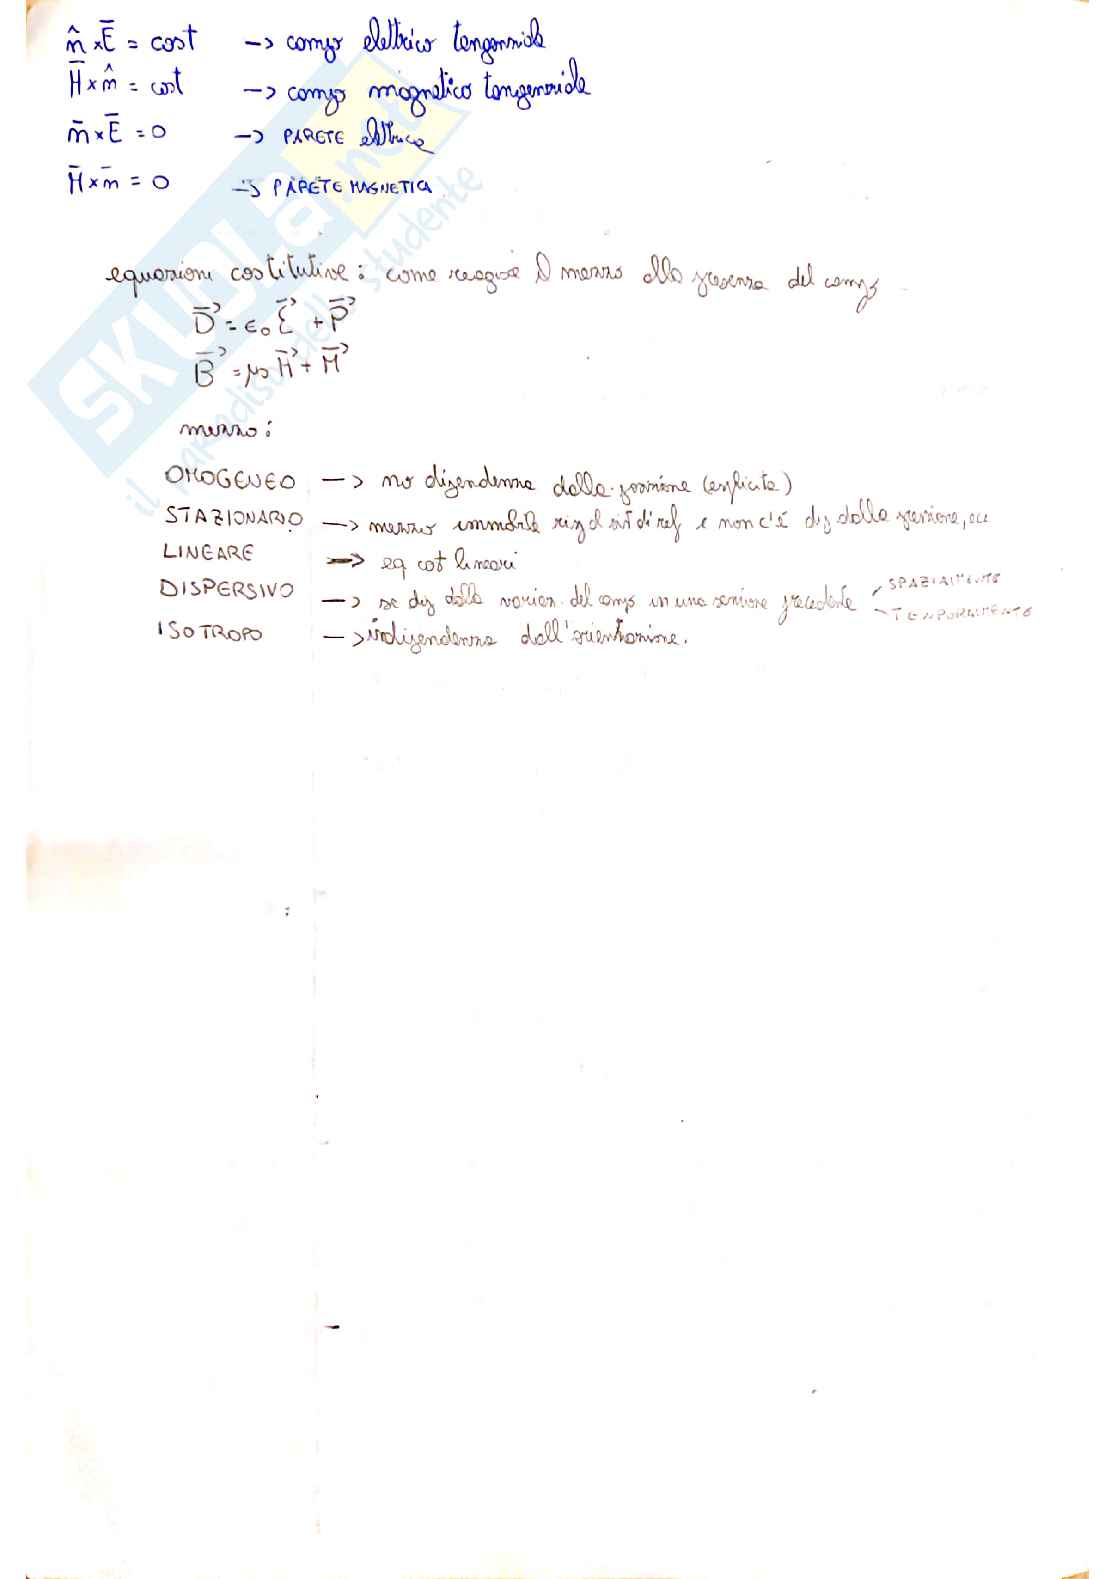 n̂ × E̅ = cost -> campo elettrico tangenziale
H̅ × n̂ = cost -> campo magnetico tangenziale
n̅ × E̅ = 0 -> PARETE elettrica
H̅ × n̅ = 0 -> PARETE MAGNETICA
equazioni costitutive: come reagisce il mezzo alla presenza del campo
D⃗ = ε₀ Ɛ⃗ + P⃗
B⃗ = μ₀ H⃗ + M⃗
mezzo:
OMOGENEO -> no dipendenza dalla posizione (esplicita)
STAZIONARIO -> mezzo immobile risp al sist di ref e non c'è dip dalla pressione, ecc
LINEARE -> eq cost lineari
DISPERSIVO -> se dip dalla variaz. del campo in una sezione precedente SPAZIALMENTE
TEMPORALMENTE
ISOTROPO -> indipendenza dall'orientazione.
SKUOLa.net
il paradiso dello studente